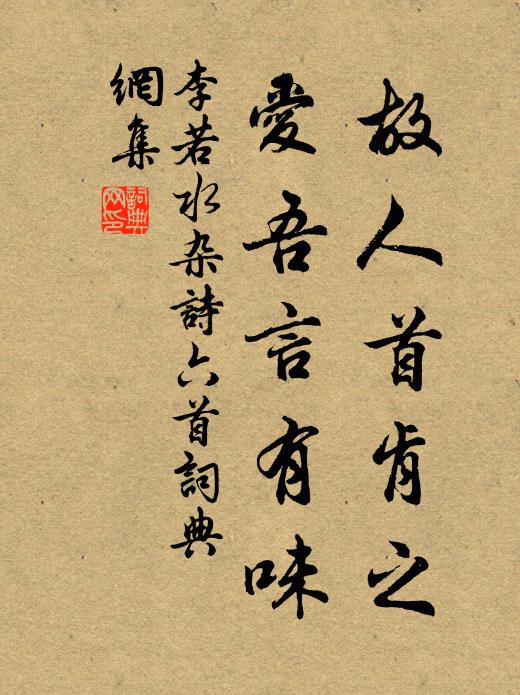 故人首肯之
愛吾言有味
李若水杂詩六首詞典
網集
詞典
网印